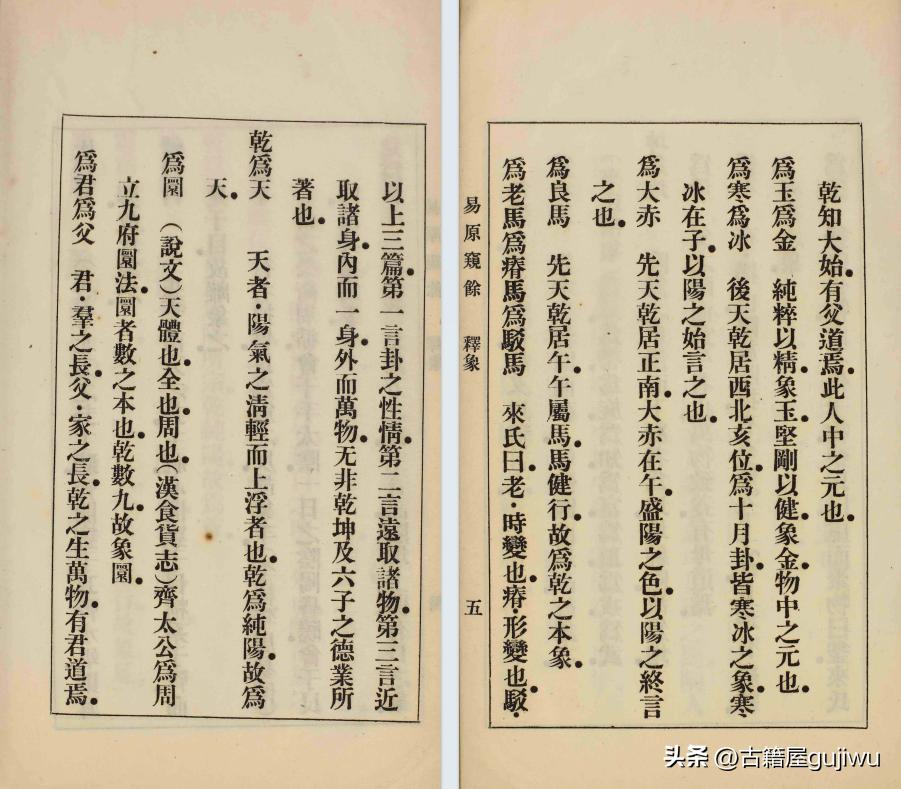 以上三篇。第一言卦之性情。第二言遠取諸物。第三言近
取諸身。內而一身。外而萬物。无非乾坤及六子之德業所
著也。
乾爲天　天者・陽氣之淸輕而上浮者也。乾爲純陽。故爲
天。
爲圜　（說文）天體也。全也。周也。（漢食貨志）齊太公爲周
立九府圜法。圜者數之本也。乾數九。故象圜。
爲君爲父　君・羣之長。父・家之長。乾之生萬物。有君道焉。
乾知大始。有父道焉。此人中之元也。
爲玉爲金　純粹以精象玉。堅剛以健象金。物中之元也。
爲寒爲冰　後天乾居西北亥位。爲十月卦。皆寒冰之象。寒
冰在子。以陽之始言之也。
爲大赤　先天乾居正南。大赤在午。盛陽之色。以陽之終言
之也。
爲良馬　先天乾居午。午屬馬。馬健行。故爲乾之本象。
爲老馬爲瘠馬爲駁馬　來氏曰。老・時變也。瘠・形變也。駁・
易原窺餘　釋象　五
头条 @古籍屋gujiwu